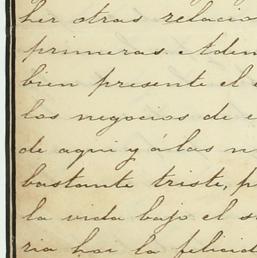 her otras relacio
primeras. Adem
bien presente el e
los negocios de e
de aqui y á las n
bastante triste, p
la vida bajo el s
ria hai la felicid